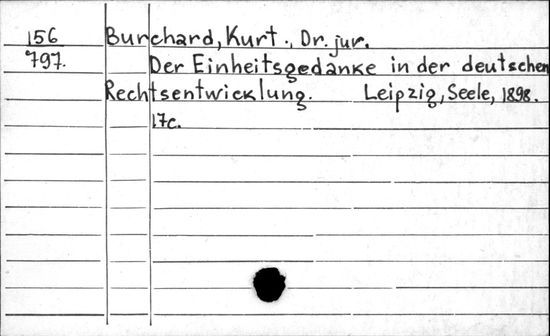 156 Burchard, Kurt., Dr. jur.
797. Der Einheitsgedanke in der deutschen
Rechtsentwicklung. Leipzig, Seele, 1898.
17c.